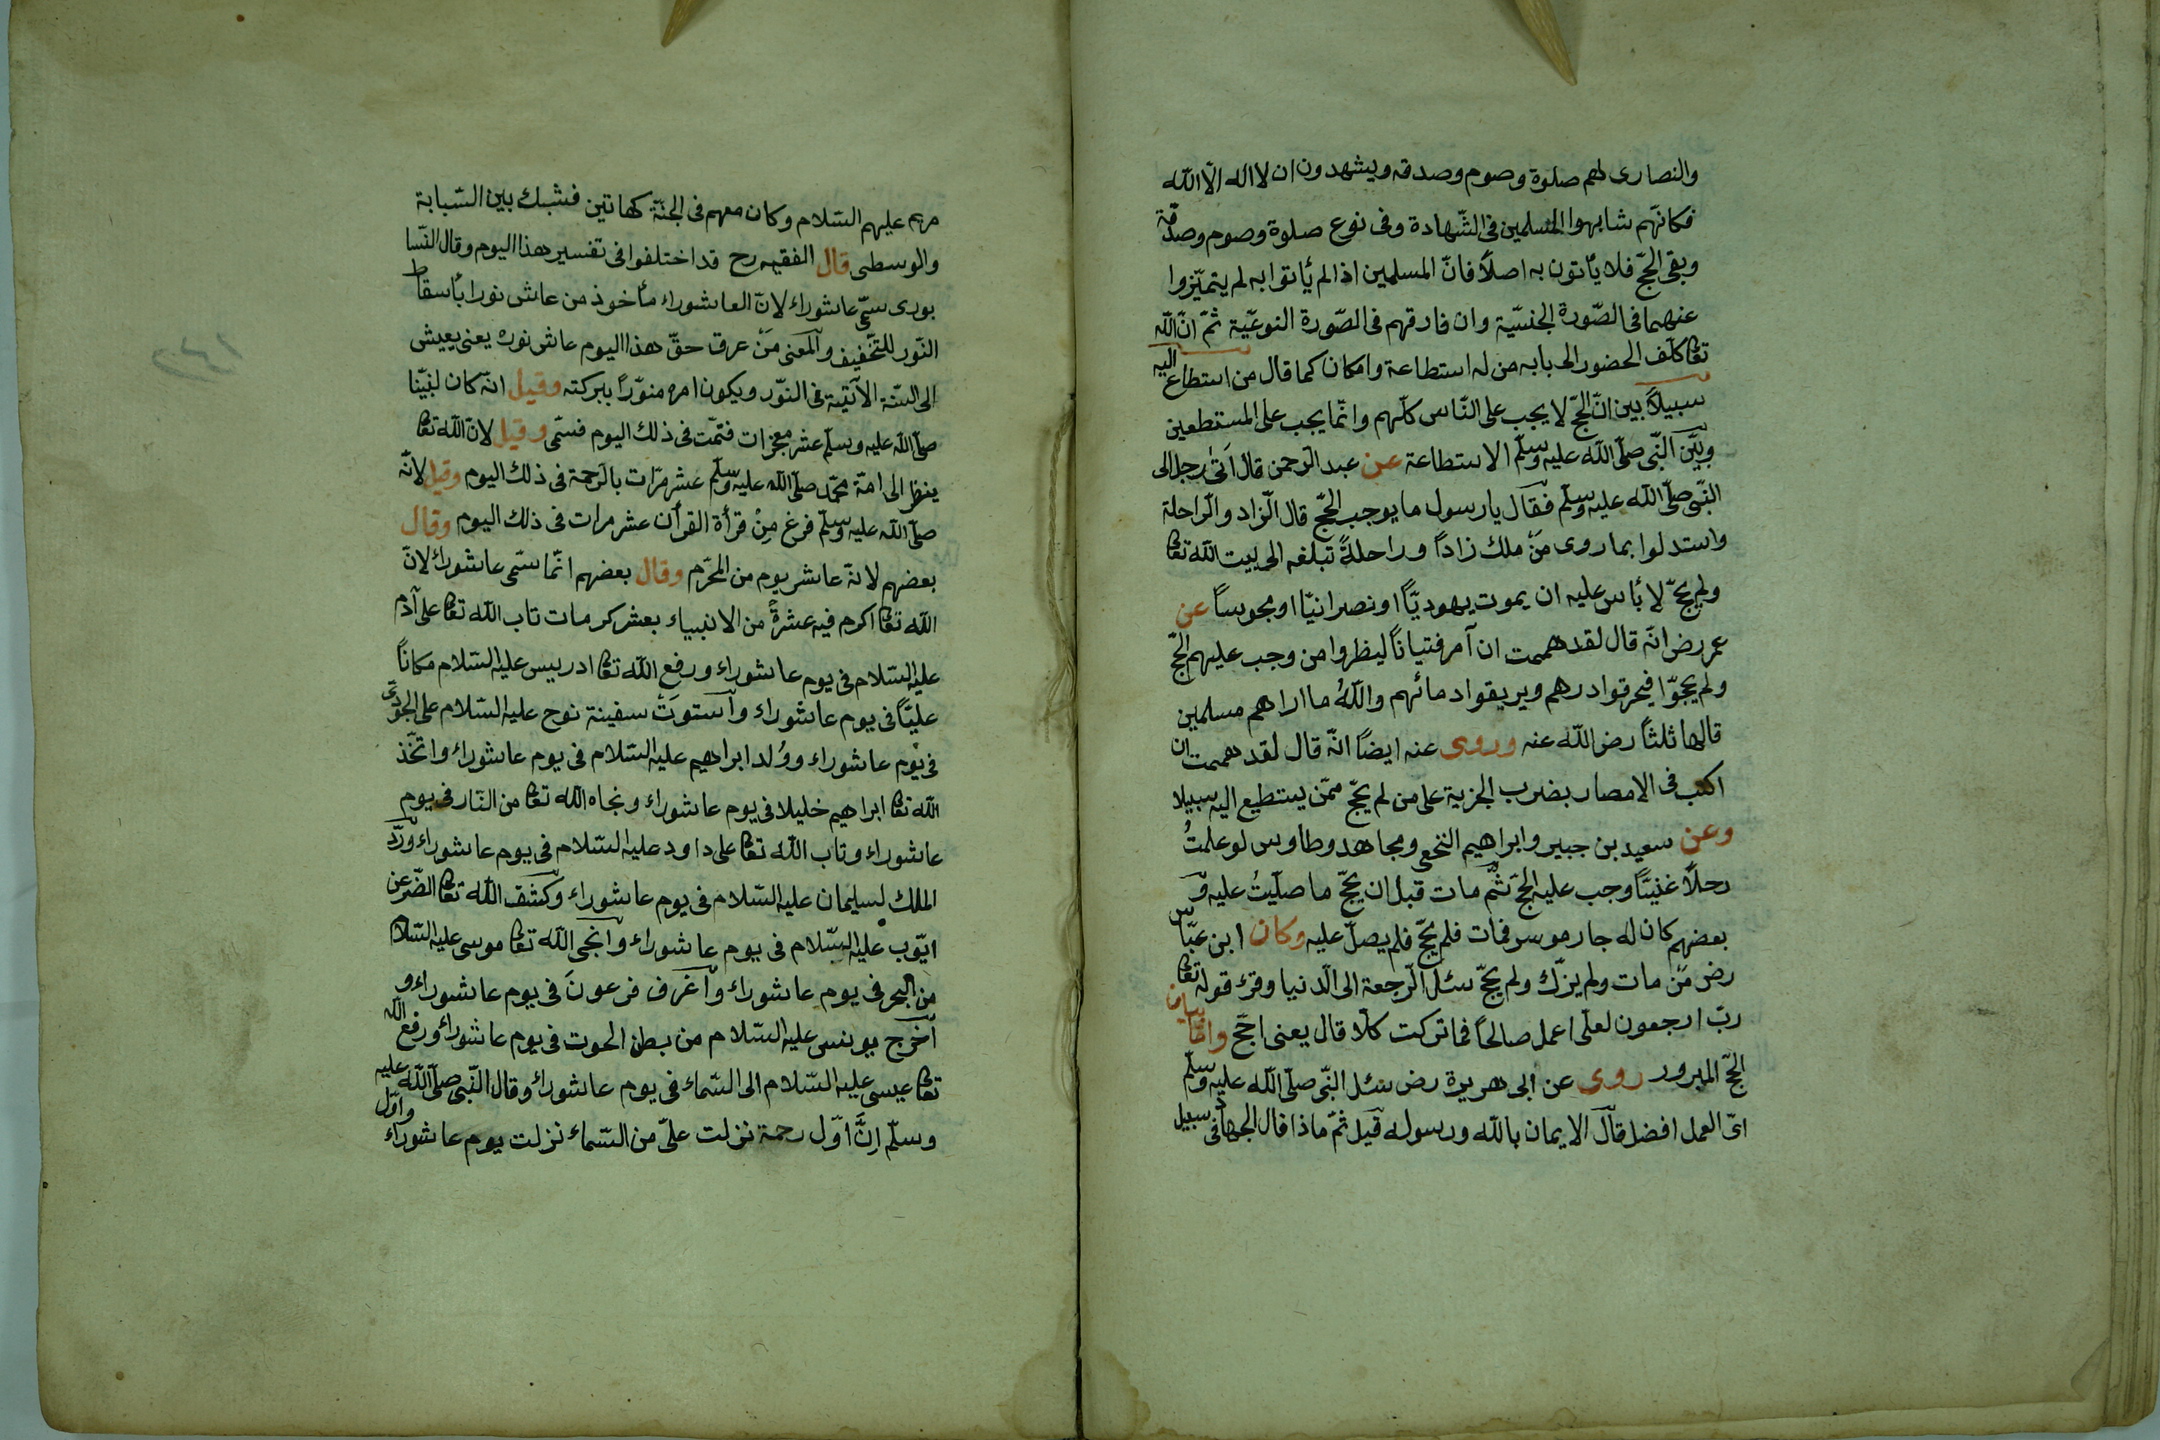 والنصارى لهم صلوة وصوم وصدقه ويشهدون ان لا اله الّا اللّه
فكانّهم شابهوا المسلمين فى الشّهادة وفى نوع صلوة وصوم وصدقة
وبقى الحجّ فلا يأتون به اصلًا فانّ المسلمين اذا لم يأتوا به لم يتميّزوا
عنهما فى الصّورة الجنسيّة وان فارقهم فى الصّورة النوعيّة ثمّ انّ اللّه
تعا كلّف الحضور الى بابه من له استطاعة وامكان كما قال من استطاع اليه
سبيلًا بين انّ الحجّ لا يجب على النّاس كلّهم وانّما يجب على المستطعين
وبيّن النّبى صلّى اللّه عليه وسلّم الاستطاعة عن عبد الرّحمن قال اتى رجل الى
النّبى صلّى اللّه عليه وسلّم فقال يا رسول ما يوجب الحجّ قال الزّاد والرّاحلة
واستدلوا بما روى من ملك زادًا وراحلةً تبلغه الى بيت اللّه تعا
ولم يحجّ لا بأس عليه ان يموت يهوديًّا او نصرانيّا او مجوسًا عن
عمر رض انّه قال لقد هممت ان آمر فتيانًا لينظروا من وجب عليهم الحجّ
ولم يحجّوا فيحرقوا درهم ويريقوا دمائهم واللّهُ ما اراهم مسلمين
قالها ثلثًا رض اللّه عنه وروى عنه ايضًا انّه قال لقد هممت ان
اكتب فى الامصار بضرب الجزية على من لم يحجّ ممّن يستطيع اليه سبيلا
وعن سعيد بن جبير وابراهيم النخعى ومجاهد وطاوس لو علمتُ
رجلًا غنيًّا وجب عليه الحجّ ثمّ مات قبل ان يحجّ ما صلّيتُ عليه و
بعضهم كان له جار موسر فمات فلم يحجّ فلم يصلّ عليه وكان ابن عبّاس
رض من مات ولم يزكّ ولم يحجّ سئل الرّجعة الى الدّنيا وقرء قوله تعا
ربّ ارجعون لعلّى اعمل صالحًا فما تركت كلّا قال يعنى احجّ وامّا بيان
الحجّ المبرور روى عن ابى هريرة رض سئل النّبى صلّى اللّه عليه وسلّم
اىّ العمل افضل قال الايمان باللّه ورسوله قيل ثمّ ماذا قال الجهاد فى سبيل
مريم عليهم السّلام وكان معهم فى الجنّة كهاتين فشبك بين السّبابة
والوسطى قال الفقيه رح قد اختلفوا فى تفسير هذا اليوم وقال النّسا
بورى سمّى عاشوراء لانّ العاشوراء مأخوذ من عاش نورا بأسقاط
النّور للتخفيف والمعنى من عرف حقّ هذا اليوم عاش نوره يعنى يعيش
الى السّنة الآتية فى النّور ويكون امره منوّرًا ببركته وقيل انّه كان لنبيّنا
صلّى اللّه عليه وسلّم عشر معجزات فتمّت فى ذلك اليوم فسمّى وقيل لانّ اللّه تعا
ينظر الى امّة محمّد صلّى اللّه عليه وسلّم عشر مرّات بالرّحمة فى ذلك اليوم وقيل لانّه
صلّى اللّه عليه وسلّم فرغ مِنْ قرأة القرأن عشر مرات فى ذلك اليوم وقال
بعضهم لانّه عاشر يوم من المحرّم وقال بعضهم انّما سمّى عاشوراء لانّ
اللّه تعا اكرم فيه عشرةً من الانبياء بعشر كرمات تاب اللّه تعا على آدم
عليه السّلام فى يوم عاشوراء ورفع اللّه تعا ادريس عليه السّلام مكانًا
عليًّا فى يوم عاشوراء واستوت سفينة نوح عليه السّلام على الجودى
فى يوم عاشوراء ووُلد ابراهيم عليه السّلام فى يوم عاشوراء واتّخذ
اللّه تعا ابراهيم خليلا فى يوم عاشوراء ونجاه اللّه تعا من النّار فى يوم
عاشوراء وتاب اللّه تعا على داود عليه السّلام فى يوم عاشوراء وردّ
الملك لسليمان عليه السّلام فى يوم عاشوراء وكشف اللّه تعا الضّر عن
ايّوب عليه السّلام فى يوم عاشوراء وانجى اللّه تعا موسى عليه السّلام
من البحر فى يوم عاشوراء واغرف فرعونَ فى يوم عاشوراء و
اخرج يونس عليه السّلام من بطن الحوت فى يوم عاشوراء ورفع اللّه
تعا عيسى عليه السّلام الى السّماء فى يوم عاشوراء وقال النّبى صلّى اللّه عليه
وسلّم اِنَّ اوّل رحمة نزلت علىّ من السّماء نزلت يوم عاشوراء واوّل